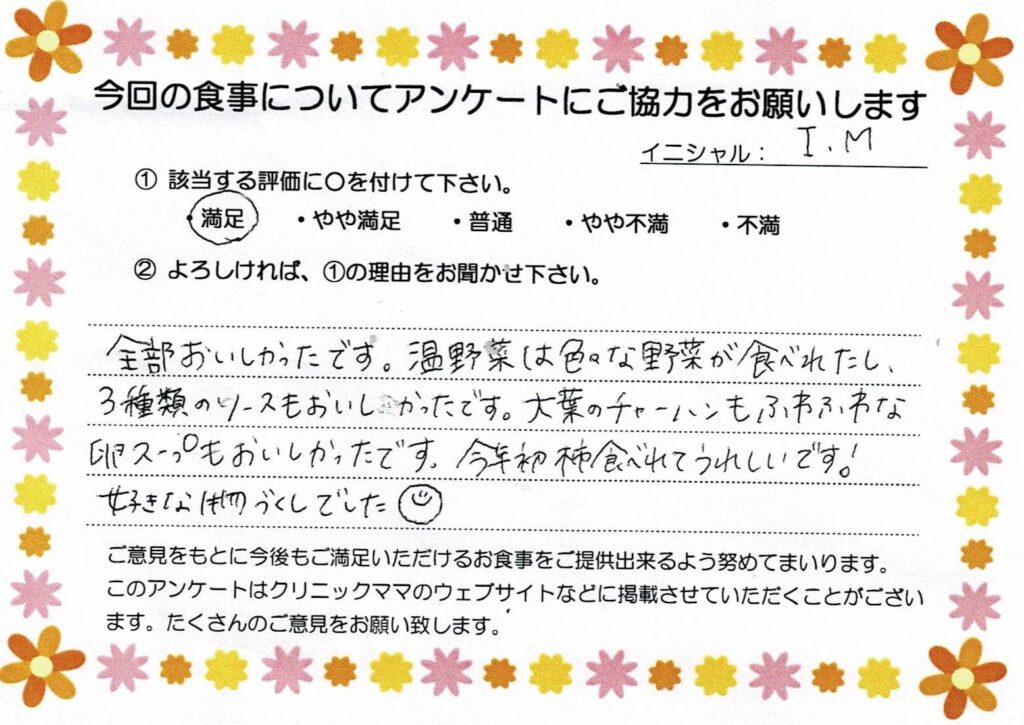 今回の食事についてアンケートにご協力をお願いします
イニシャル： I.M
① 該当する評価に〇を付けて下さい。
・満足 ・やや満足 ・普通 ・やや不満 ・不満
② よろしければ、①の理由をお聞かせ下さい。
全部おいしかったです。温野菜は色々な野菜が食べれたし、
3種類のソースもおいしかったです。大葉のチャーハンもふわふわな
卵スープもおいしかったです。今年初柿食べれてうれしいです！
好きな物づくしでした
ご意見をもとに今後もご満足いただけるお食事をご提供出来るよう努めてまいります。
このアンケートはクリニックママのウェブサイトなどに掲載させていただくことがござい
ます。たくさんのご意見をお願い致します。